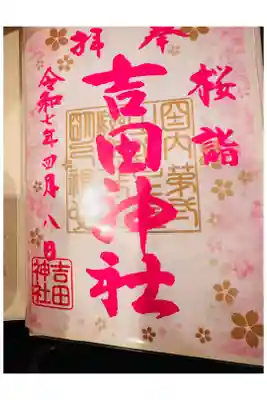 奉拝
桜詣
吉田神社
令和七年四月八日
吉田
神社